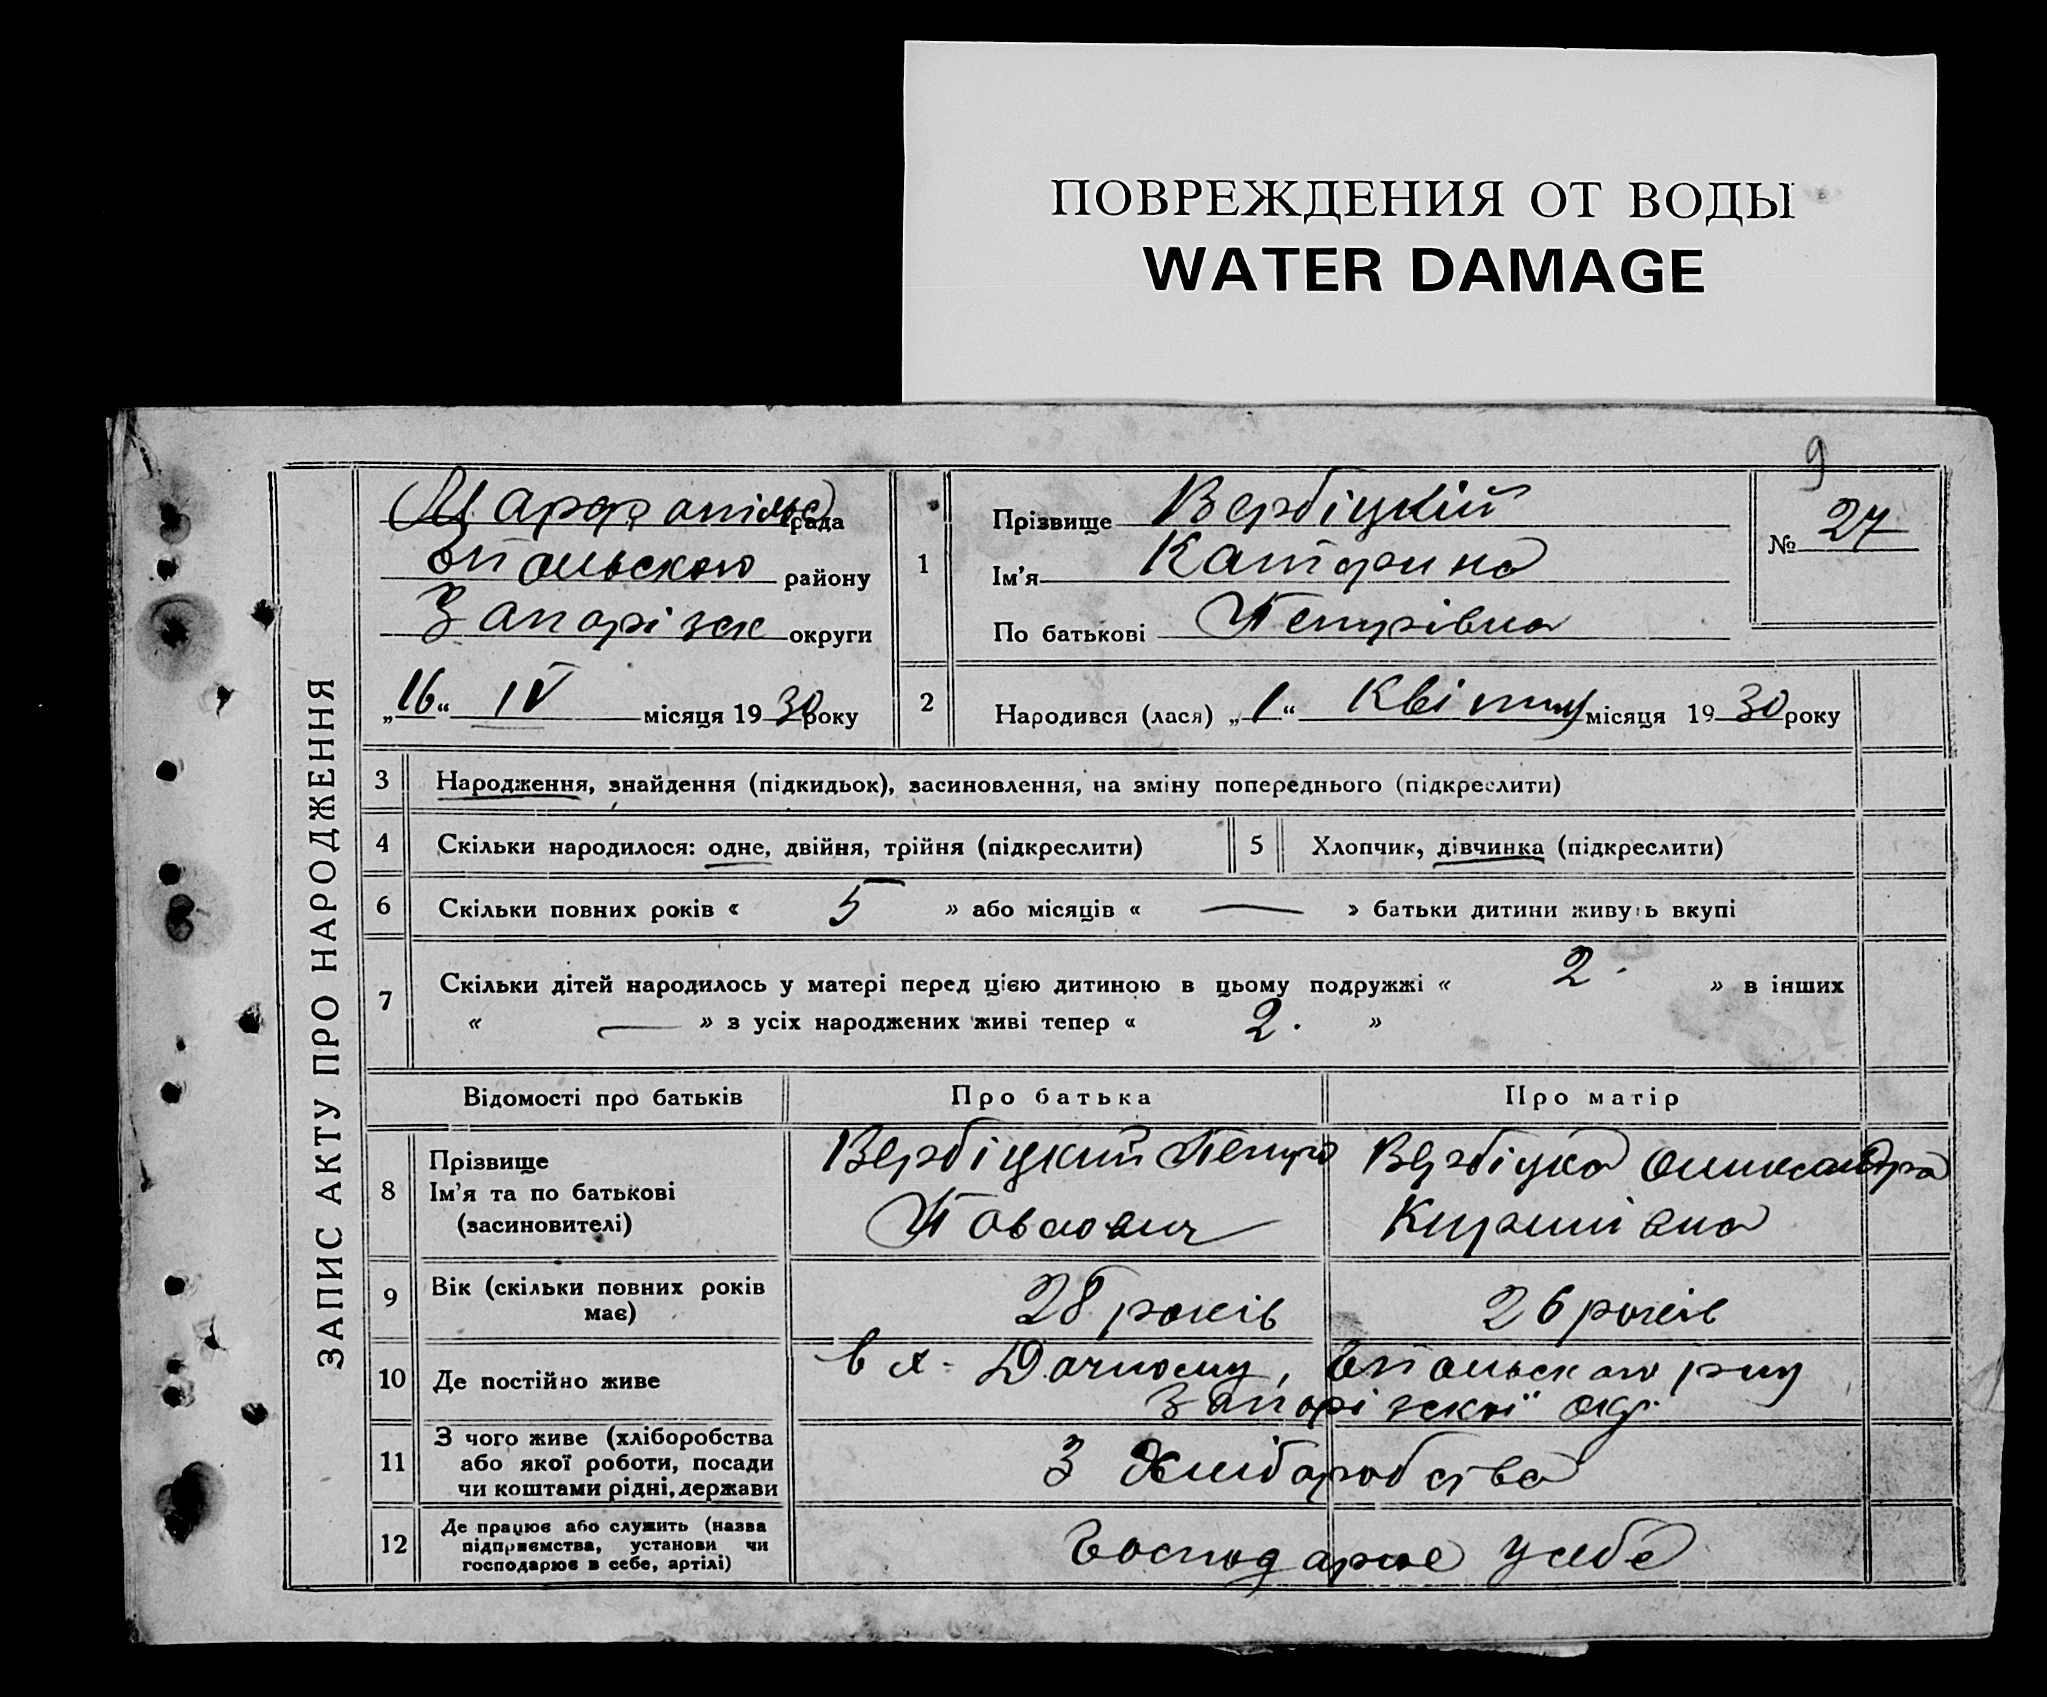 ПОВРЕЖДЕНИЯ ОТ ВОДЫ
WATER DAMAGE
9
ЗАПИС АКТУ ПРО НАРОДЖЕННЯ
рада
району
Запорізск округи
„16“ IV місяця 1930 року
1
Прізвище Вербіцкій
Ім’я Катерина
По батькові Петрівна
№ 27
2 Народився (лася) „1“ Квітня місяця 1930 року
3 Народження, знайдення (підкидьок), засиновлення, на зміну попереднього (підкреслити)
4 Скільки народилося: одне, двійня, трійня (підкреслити) 5 Хлопчик, дівчинка (підкреслити)
6 Скільки повних років « 5 » або місяців « — » батьки дитини живуть вкупі
7 Скільки дітей народилось у матері перед цією дитиною в цьому подружжі « 2. » в інших
« — » з усіх народжених живі тепер « 2. »
Відомості про батьків Про батька Про матір
8 Прізвище
Ім’я та по батькові
(засиновителі)
Вербіцкий Петро
Павлович
Вербіцка Олександра
9 Вік (скільки повних років
має)
28 років 26 років
10 Де постійно живе
в х. Дачному, р-ну
Запорізскої окр.
11 З чого живе (хліборобства
або якої роботи, посади
чи коштами рідні, держави
З Хліборобства
12 Де працює або служить (назва
підприємства, установи чи
господарює в себе, артілі)
Господарює у себе